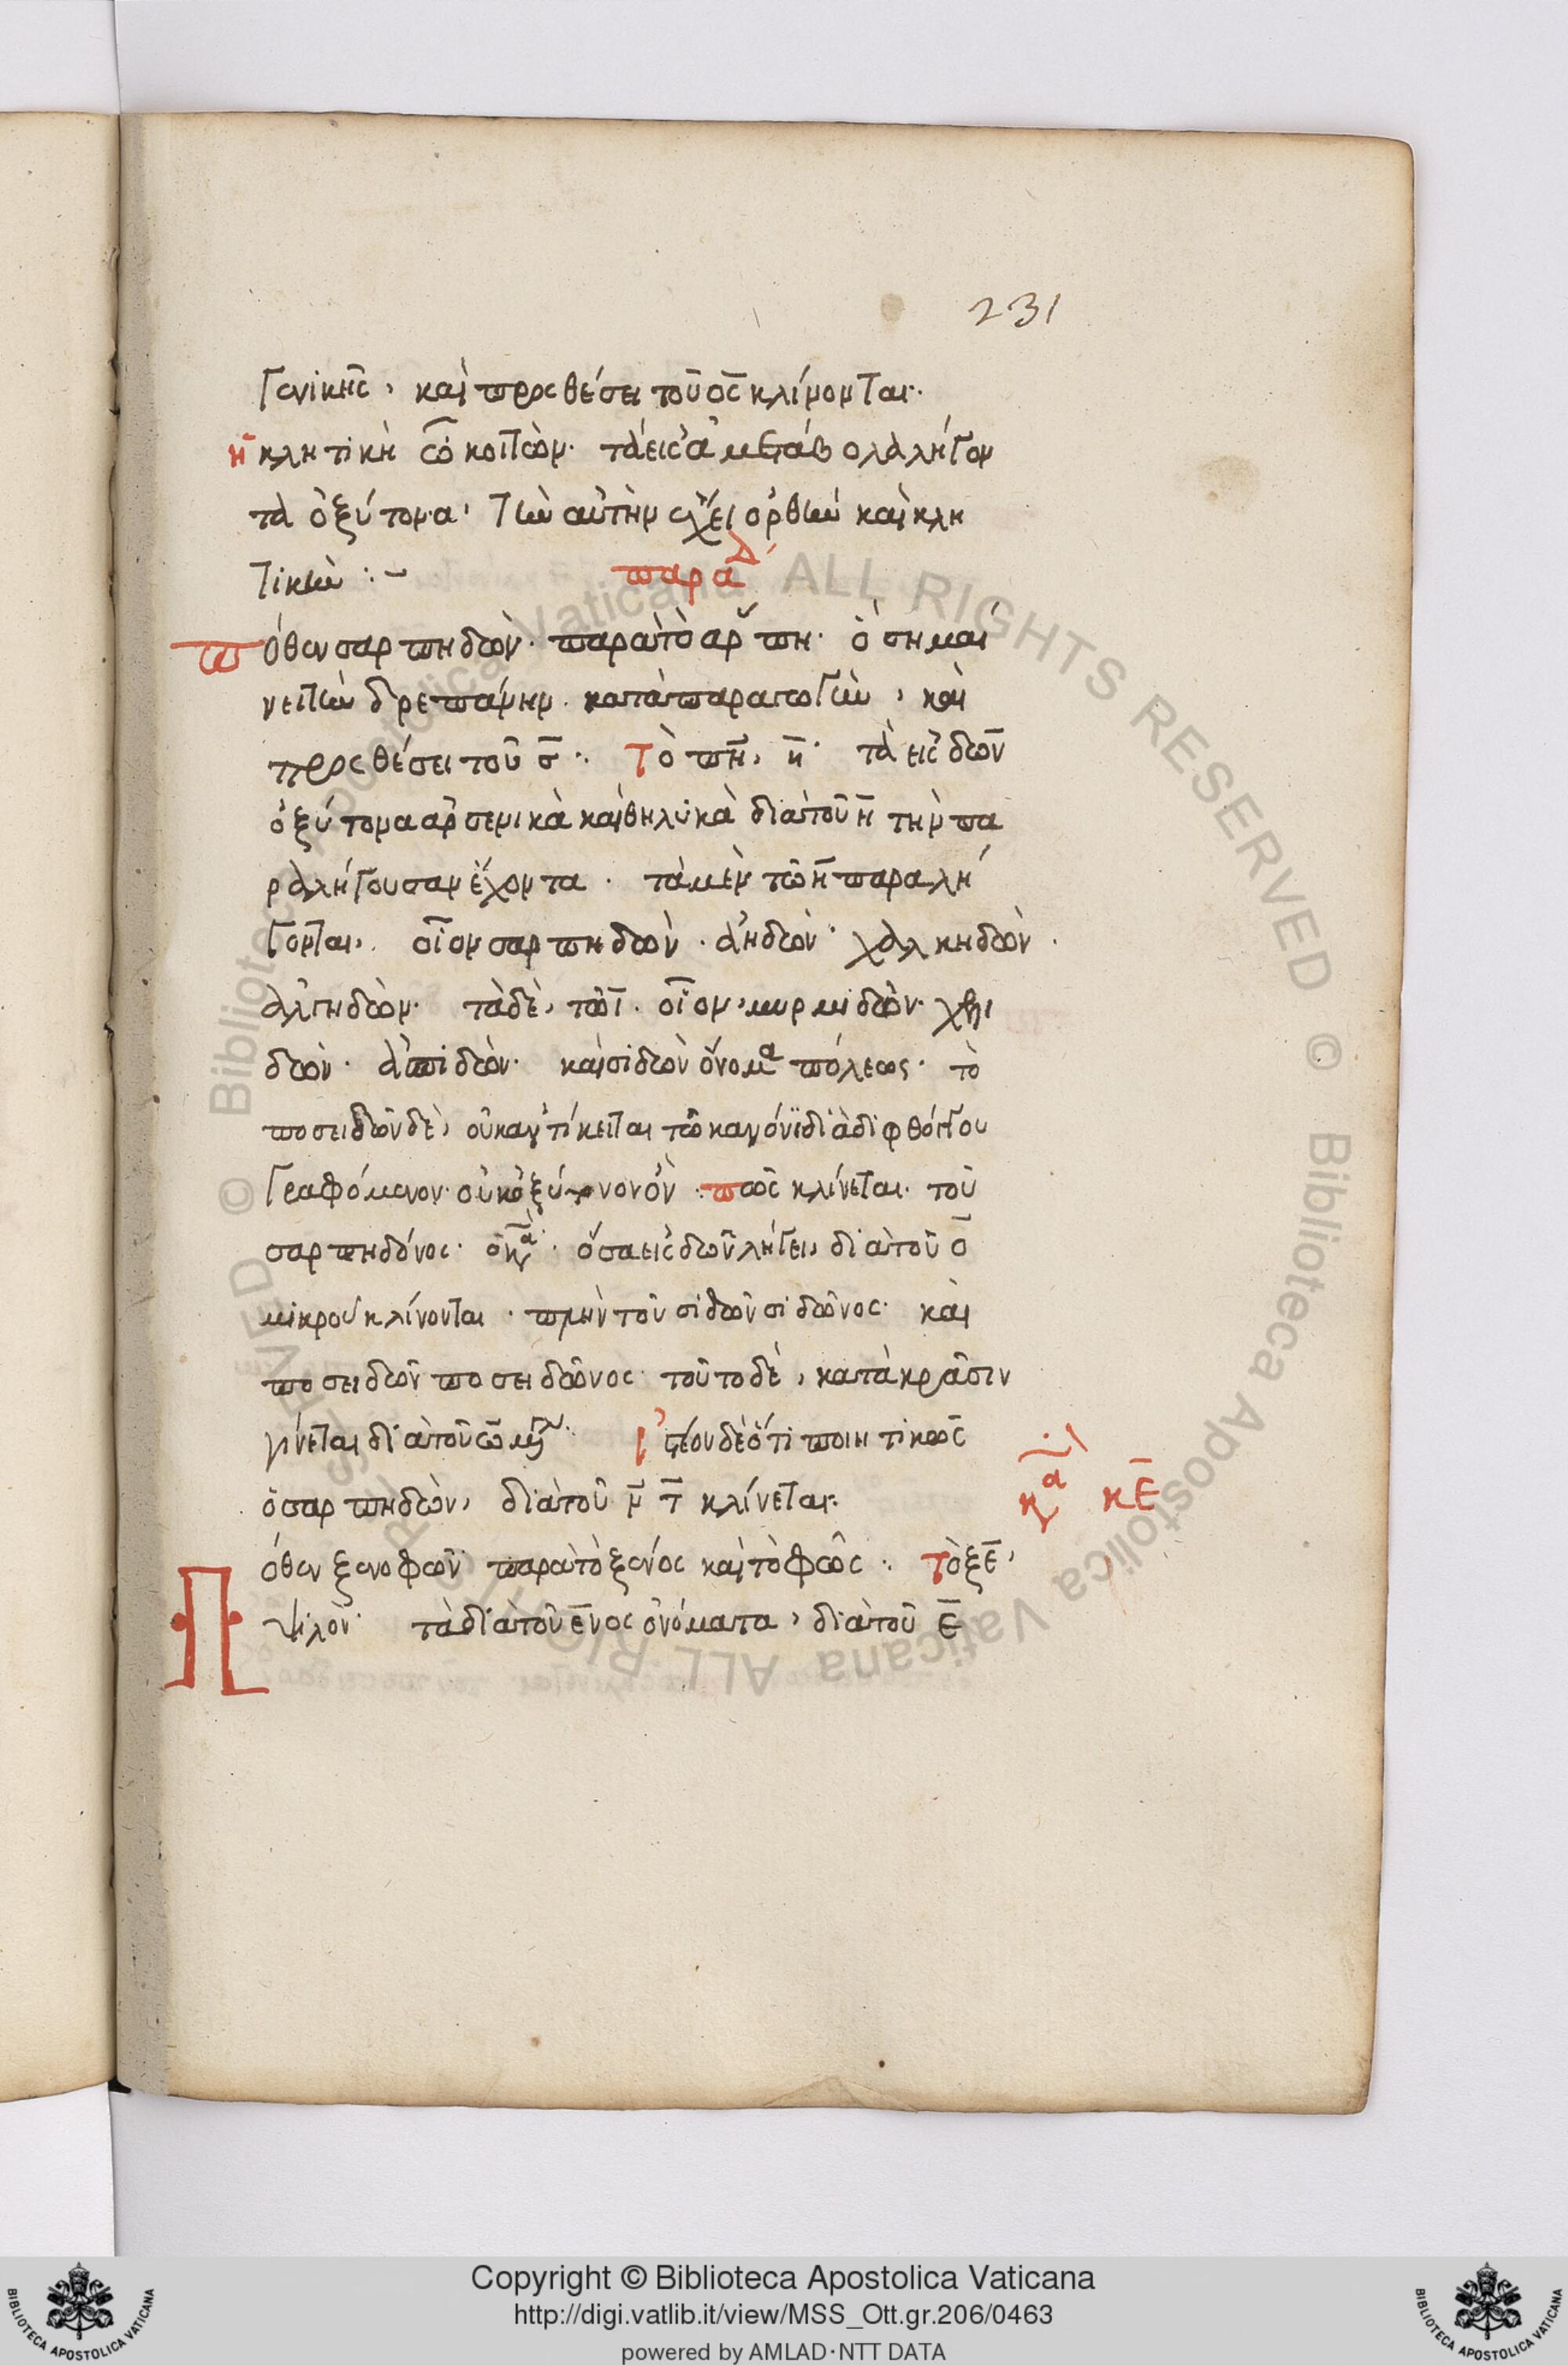 231
γενικῆς, καὶ προσθέσει τοῦ ος κλίνονται.
ἡ κλητικὴ ὦ κοιτών. τὰ εἰς α μετάβολα λήγον
τὰ ὀξύτονα, τὴν αὐτὴν ἔχει ὀρθὴν καὶ κλη
τικήν :-
παρα
πόθεν σαρπηδών. παρὰ τὸ ἄρπη. ὃ σημαί
νει τὴν δρεπάνην. κατὰ παραγωγὴν, καὶ
προσθέσει τοῦ σ̄ : τὸ πη, η̄. τὰ εἰς δων
ὀξύτονα ἀρσενικὰ καὶ θηλυκὰ διὰ τοῦ η̄ τὴν πα
ραλήγουσαν ἔχοντα. τὰ μὲν τῶ η̄ παραλή
γονται, οἷον σαρπηδών. ἀηδών. χαλκηδών.
ἀλγηδών. τὰ δὲ, τῶ ῑ. οἷον, μυρμιδών. χελι
δών. ἀσπιδών. καὶ σιδὼν ὄνομα πόλεως. τὸ
ποσειδῶν δὲ, οὐκ ἀντίκειται τῶ κανόνι διὰ διφθόγγου
γραφόμενον. οὐκ ὀξύτονον ὄν : πῶς κλίνεται. τοῦ
σαρπηδόνος. ὁ κανών. ὅσα εἰς δων λήγει, διὰ τοῦ ο̄
μικροῦ κλίνονται. πλὴν τοῦ σιδὼν σιδῶνος. καὶ
ποσειδῶν ποσειδῶνος. τοῦτο δὲ, κατὰ κρᾶσιν
γίνεται διὰ τοῦ ω μεγάλου. ἰστέον δὲ ὅτι ποιητικῶς
ὁ σαρπηδὼν, διὰ τοῦ ν̄ τ̄ κλίνεται.
κα κε
Πόθεν ξενοφῶν. παρὰ τὸ ξένος καὶ τὸ φῶς : τὸ ξε,
ψιλόν. τὰ διὰ τοῦ ενος ὀνόματα, διὰ τοῦ ε̄
Copyright © Biblioteca Apostolica Vaticana
http://digi.vatlib.it/view/MSS_Ott.gr.206/0463
powered by AMLAD·NTT DATA